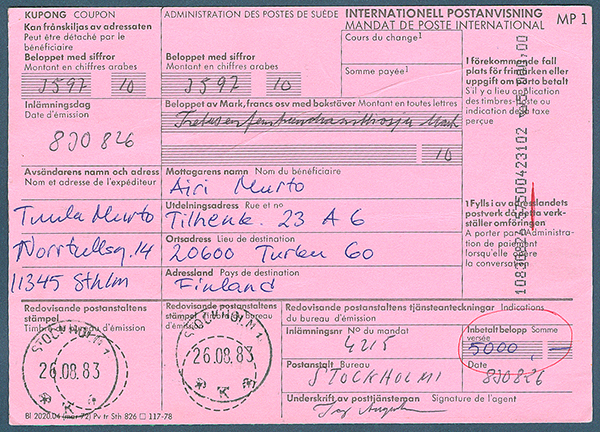 KUPONG COUPON
Kan frånskiljas av adressaten
Peut être détaché par le
bénéficiaire
Beloppet med siffror
Montant en chiffres arabes
3597 10
Inlämningsdag
Date d'émission
830826
Avsändarens namn och adress
Nom et adresse de l'expéditeur
Tuula Murto
Norrtullsg. 14
11345 Sthlm
Redovisande postanstaltens
stämpel
Timbre du bureau d'émission
STOCKHOLM 1
26.08.83
K
Bl 2020.04 (mar 72) Pv tr Sth 826 117-78
ADMINISTRATION DES POSTES DE SUÈDE
Beloppet med siffror
Montant en chiffres arabes
3597 10
INTERNATIONELL POSTANVISNING
MANDAT DE POSTE INTERNATIONAL
MP 1
Cours du change¹
Somme payée¹
Beloppet av Mark, francs osv med bokstäver Montant en toutes lettres
Mark
10
Mottagarens namn Nom du bénéficiaire
Airi Murto
Utdelningsadress Rue et no
Tilhenk. 23 A 6
Ortsadress Lieu de destination
20600 Turku 60
Adressland Pays de destination
Finland
I förekommande fall
plats för frimärken eller
uppgift om porto betalt
S'il y a lieu application
des timbres-poste ou
indication de la taxe
perçue
1 Fylls i av adresslandets
postverk då detta verk-
ställer omföringen
A porter par l'Administra-
tion de paiement
lorsqu'elle opère
la conversation
Redovisande postanstaltens
stämpel Timbre du bureau
d'émission
STOCKHOLM 1
26.08.83
K
Redovisande postanstaltens tjänsteanteckningar Indications
du bureau d'émission
Inlämningsnr Nº du mandat
4215
Inbetalt belopp Somme
versée
5000,—
Postanstalt Bureau
STOCKHOLM 1
Date
830826
Underskrift av posttjänsteman Signature de l'agent